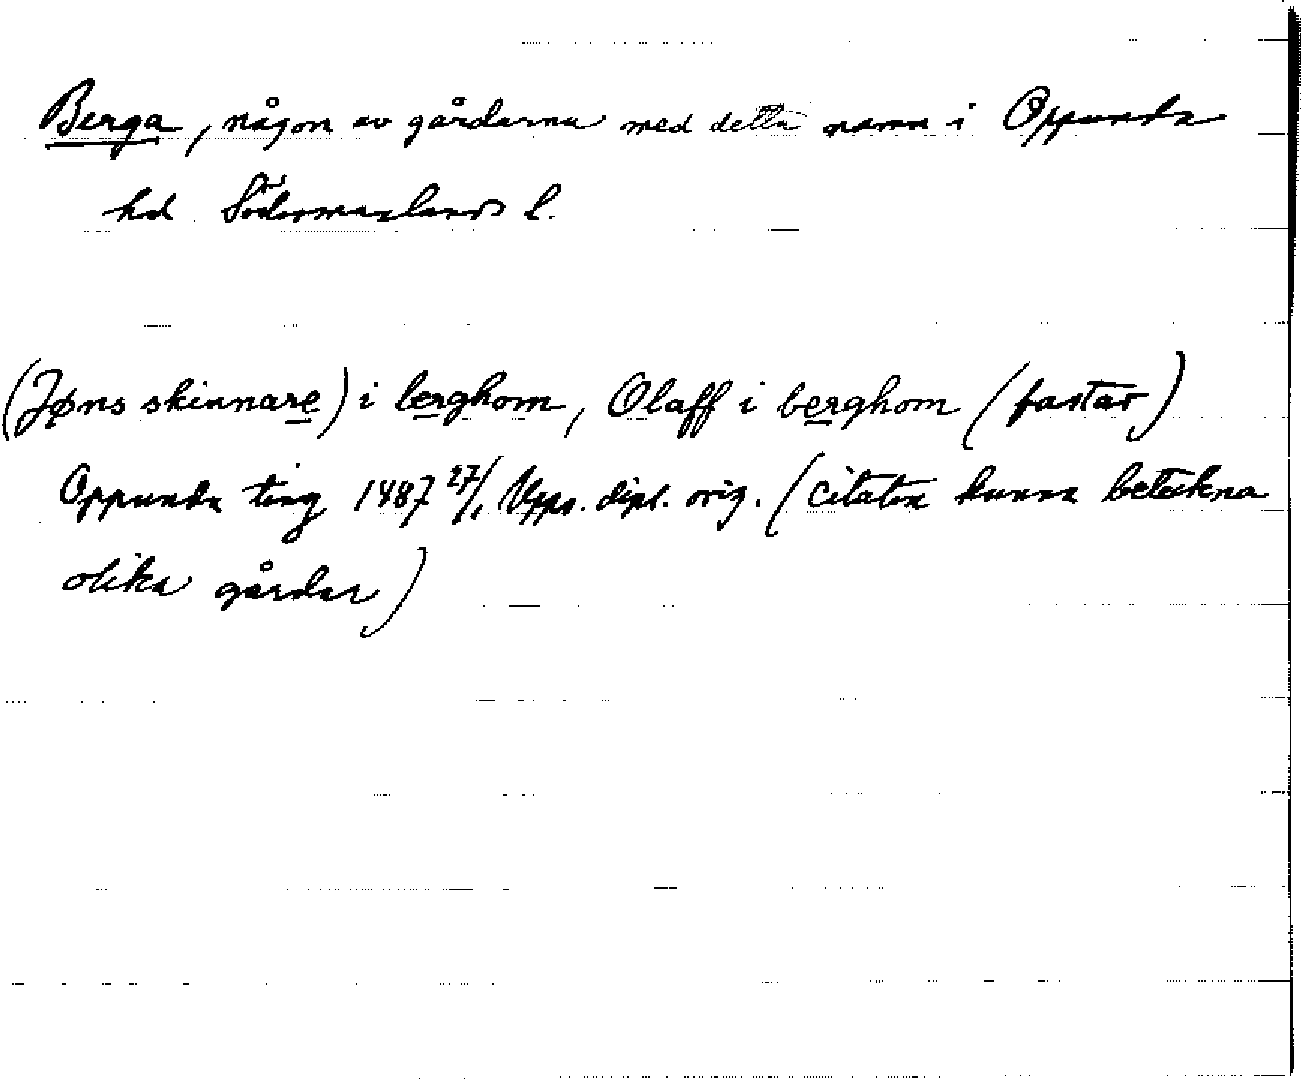 Berga, någon av gårdarna med detta namn i Oppunda
hd Södermanlands l.
(Jøns skinnare) i berghom, Olaff i berghom (fastar)
Oppunda ting 1487 27/1 Upps. dipl. orig. (citaten kunna beteckna
olika gårdar)